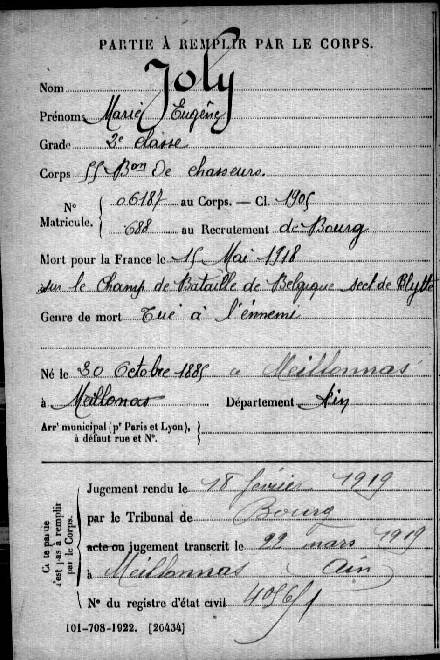 PARTIE À REMPLIR PAR LE CORPS.
Nom Joly
Prénoms Marie Eugène
Grade 2e classe
Corps 55 Bon de chasseurs.
N° Matricule. { 06187 au Corps. — Cl. 1905
688 au Recrutement de Bourg
Mort pour la France le 15 Mai 1918
sur le Champ de Bataille de Belgique sect de Clytte
Genre de mort Tué à l'énnemi
Né le 30 Octobre 1885 à Meillonnas
à Meillonas Département Ain
Arrt municipal (pr Paris et Lyon), à défaut rue et N°.
Cette partie n'est pas à remplir par le Corps.
Jugement rendu le 18 février 1919
par le Tribunal de Bourg
acte ou jugement transcrit le 22 mars 1919
à Meillonnas (Ain)
N° du registre d'état civil
101-708-1922. [26434]